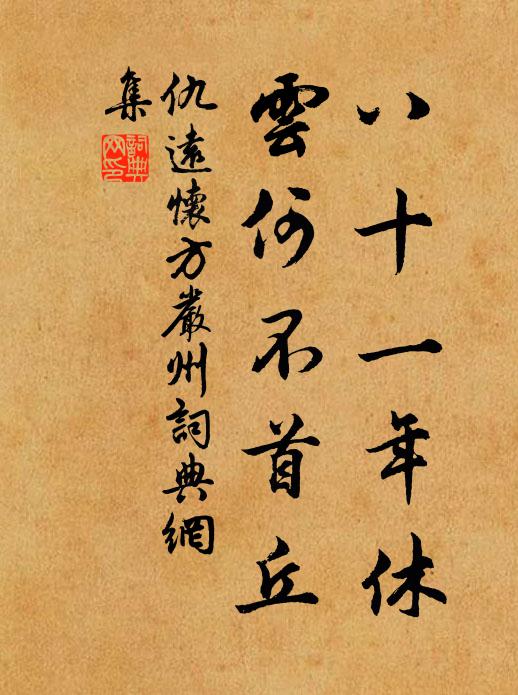 八十一年休
雲何不首丘
仇遠懷方嚴州詞典網
集
詞典網印